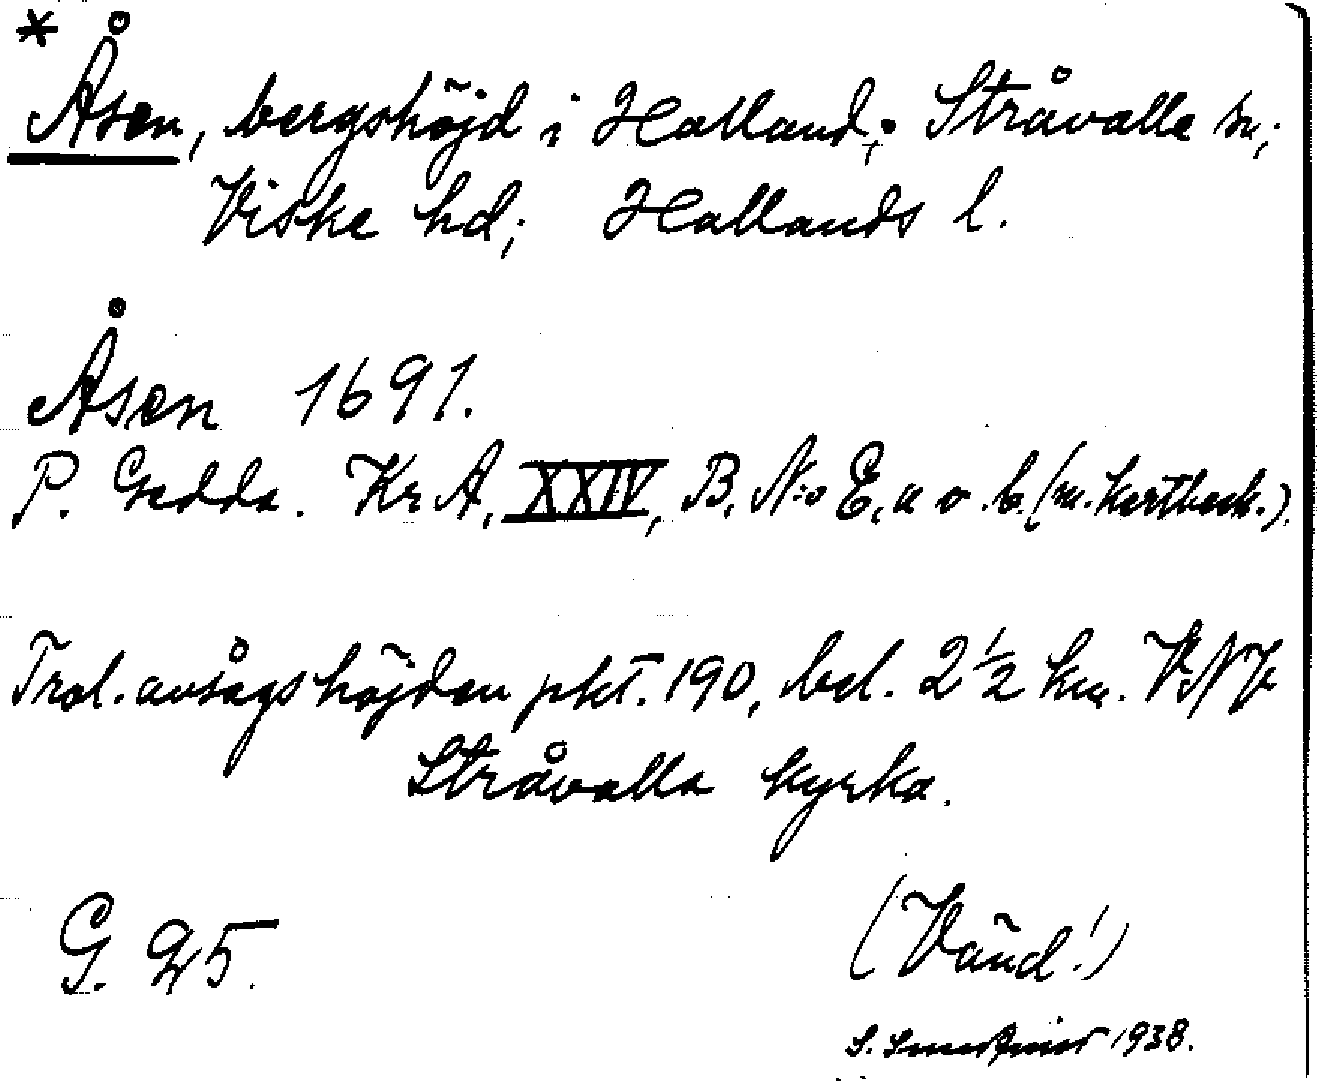 * Åsen, bergshöjd i Halland; Stråvalla sn;
Viske hd; Hallands l.
Åsen 1691.
P. Gedda. Kr A, XXIV, B. N:o E, a o. b. (m. kortbesk.).
Trol. avsågs höjden pkt. 190, bel. 2 1/2 km. VNV
Stråvalla kyrka.
G. 25.
(Vänd!)
S. 1938.